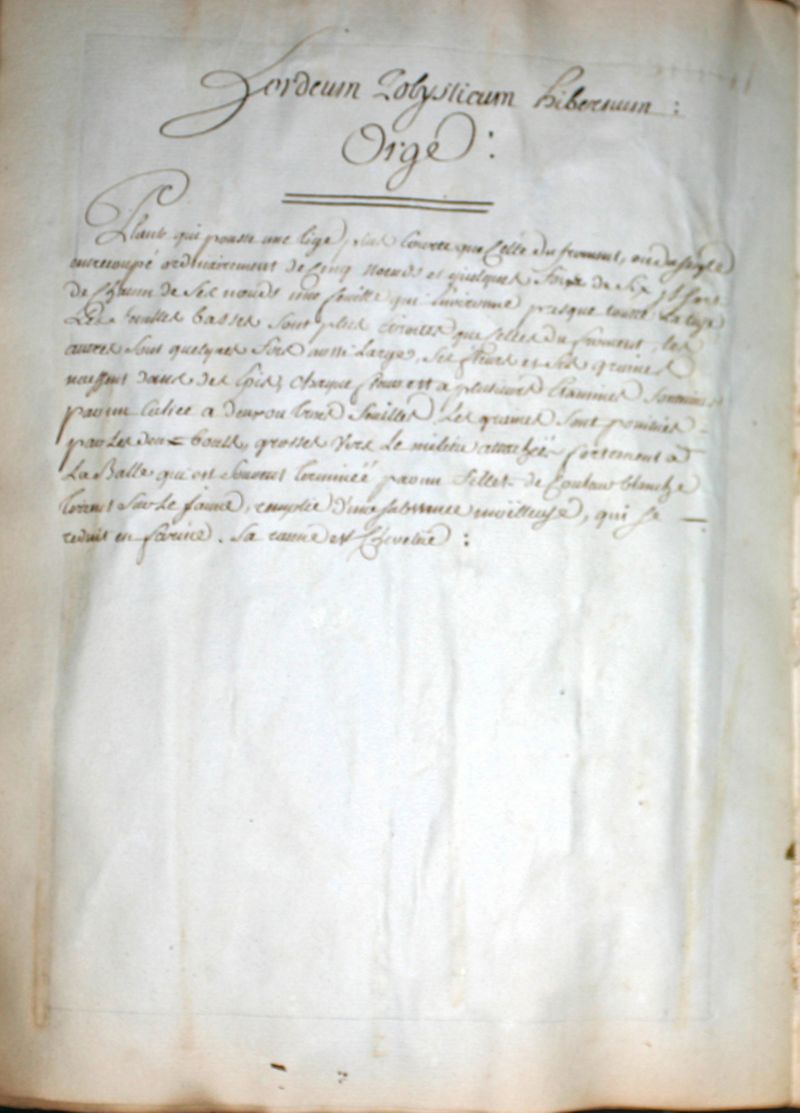 Hordeum Polysticum hibernum :
Orge :
Plante qui pousse une tige plus courte que Celle du froment, ou du seigle
entrecoupé ordinairement de Cinq noeuds et quelques fois de six, il sort
de Chacun de ses noeuds une feuille qui l'environne presque toutte La tige
Les feuilles basses sont plus étroites que celles du froment, les
autres sont quelques fois aussi Larges, ses fleurs et ses graines
naissent dans des Epis, chaque fleur est a plusieurs Etamines soutenues
par un Calice a deux ou trois feuilles, Les graines sont pointües
par Les deux bouts, grosses vers Le milieu attachées fortement a
La Balle qui est souvent terminéé par un fillet de Couleur blanche
tirant sur Le jaune, remplie d'une substance moëlleuse, qui se
reduit en farine. Sa racine est Chevelüe :